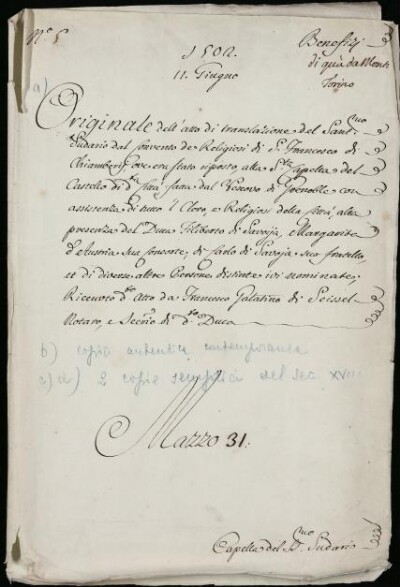 N.º 5
1502.
11. Giugno
Benefizj
di quà da Monti
Torino
a)
Originale dell'atto di translazione del Sant.mo
Sudario dal Convento de Religiosi di S. Francesco di
Chiamberì, ove era stato riposto, alla S.ta Capella del
Castello di d.ª Città fatta dal Vescovo di Grenoble con
assistenza di tutto 'l Clero, e Religiosi della Città, alla
presenza del Duca Filiberto di Savoja, e Margarita
d'Austria sua consorte, di Carlo di Savoja suo fratello,
et di diverse altre Persone distinte ivi nominate;
Ricevuto d.º Atto da Francesco Galatino di Seissel
Notaro, e Secrio di d.º Duca
b) copia autentica contemporanea
c) d) 2 copie semplici del sec. XVIII
Mazzo 31.
Capella del S.mo Sudario